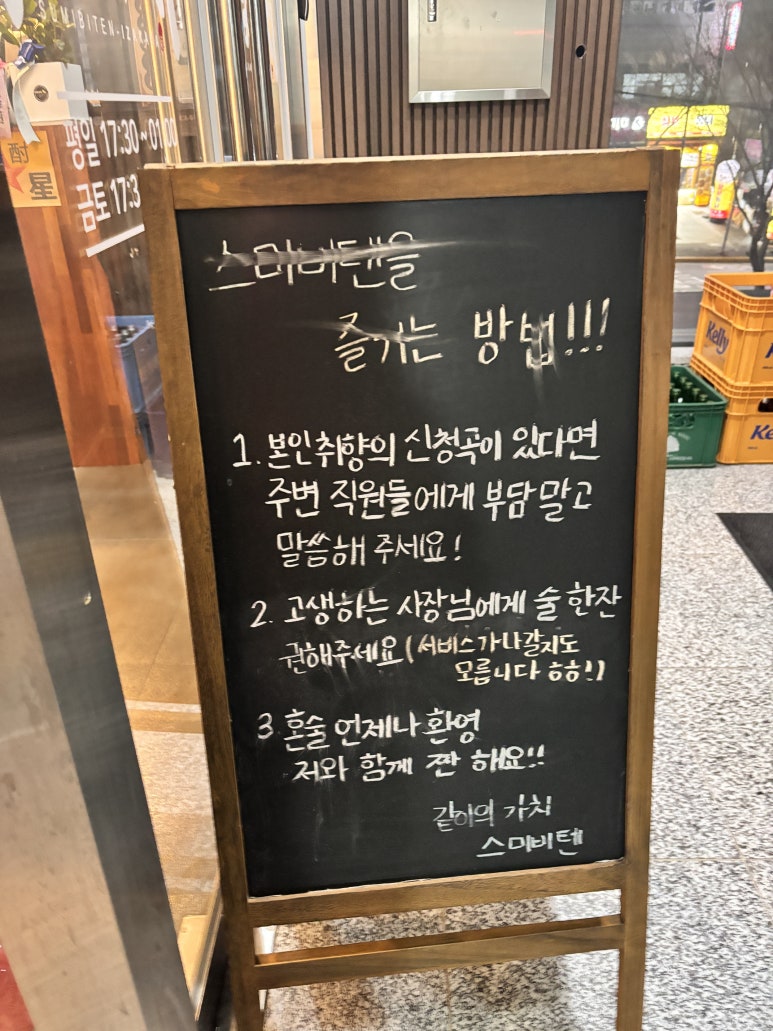 UMIBITEN-IZA
평일 17:30~01:00
금토 17:3
星
스미비텐을
즐기는 방법!!!
1. 본인취향의 신청곡이 있다면
주변 직원들에게 부담말고
말씀해 주세요!
2. 고생하는 사장님에게 술 한잔
권해주세요 (서비스가나갈지도
모릅니다 ㅎㅎ!)
3 혼술 언제나 환영
저와 함께 짠 해요!!
같이의 가치
스미비텐
Kelly
Ke